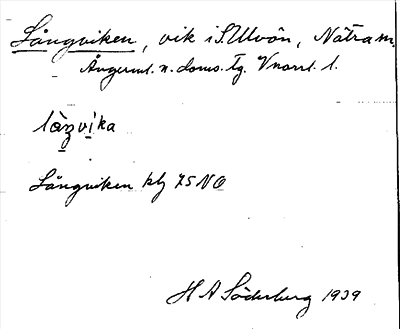 Långviken, vik i S. Ulvön, Nätra sn.
Ångerml. n. doms. tg. Vnorrl. l.
làŋvika
Långviken kbl 75 NO
H A Söderberg 1939